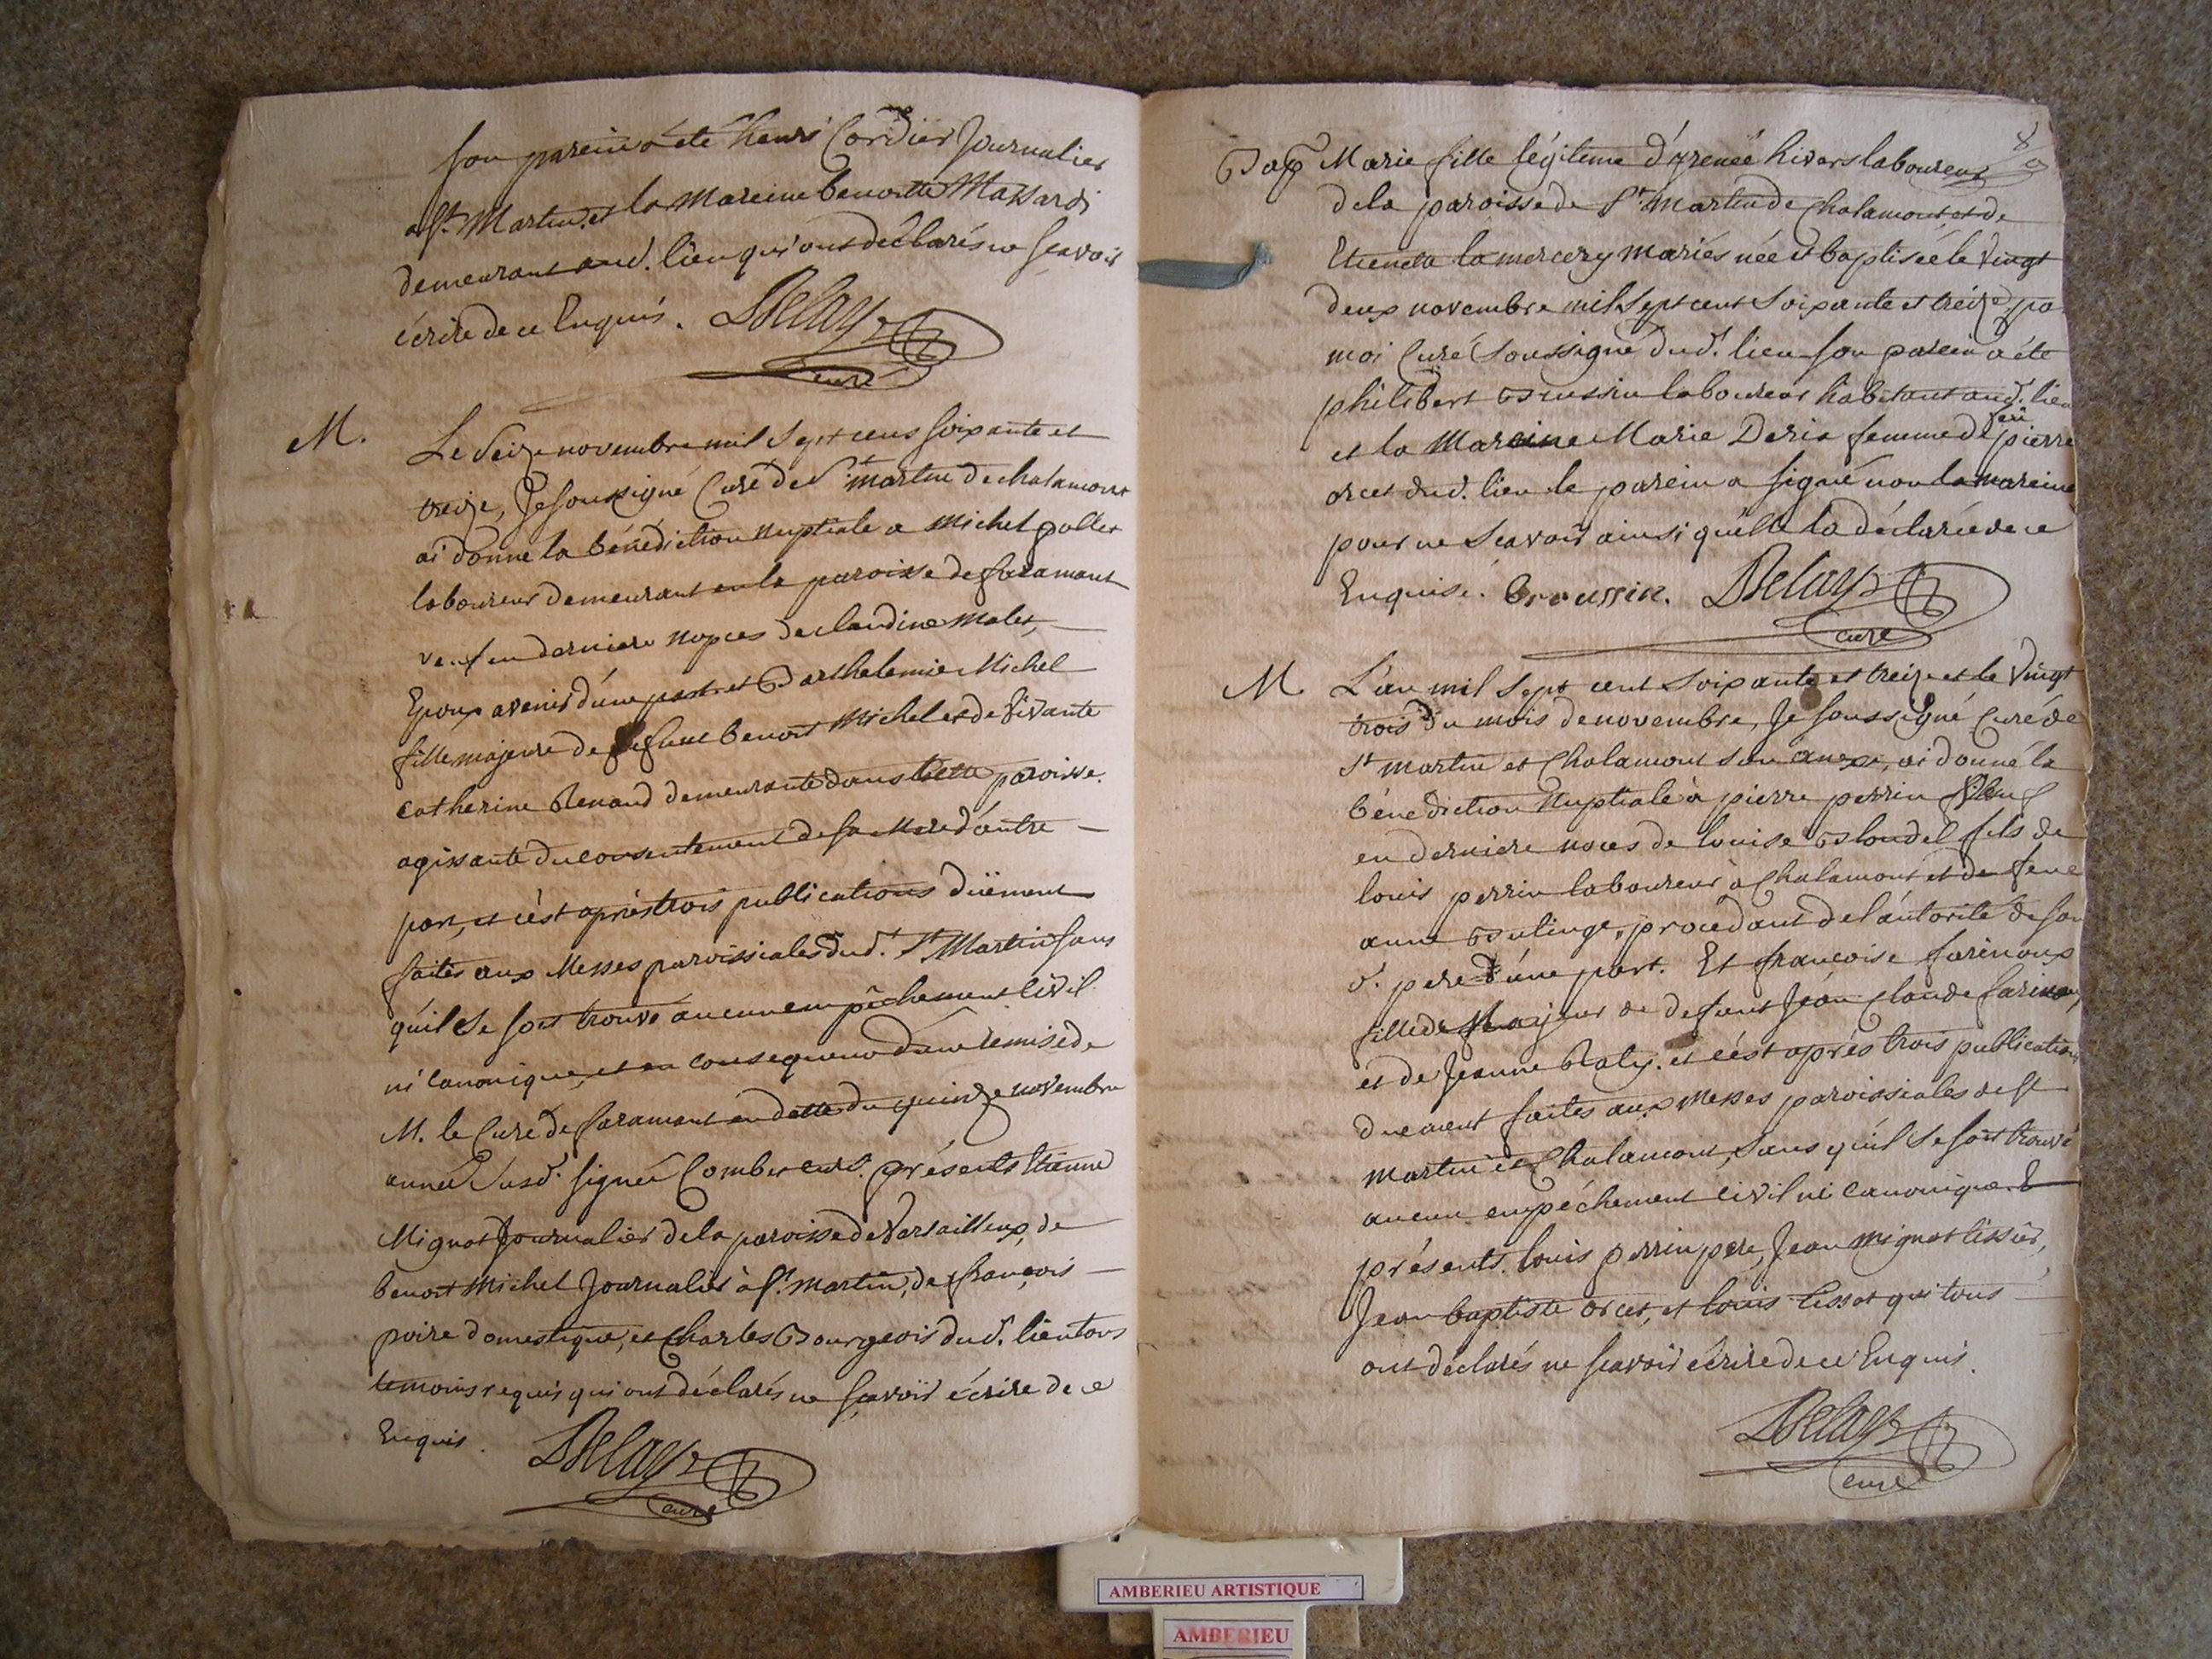 son parein a été henri Cordier Journalier
a St. Martin, et la Mareine benoitte Massard
demeurant aud. lieu qui ont déclarés ne scavoir
écrire de ce Enquis. Delay
curé
M. Le seize novembre mil sept cens soixante et
treize, Je soussigné Curé de St. martin de chalamont
ai donné la bénédiction nuptiale a Michel
laboureur demeurant en la paroisse de faramant
veuf en derniere nopces de claudine Malet,
Epoux avenir d'une part et Barthelemie Michel
fille majeure de defunt benoit Michel et de vivante
Catherine Renaud demeurante dans cette paroisse.
agissante du consentement de sa Mere d'autre
part, et c'est aprés trois publications düement
faites aux Messes paroissiales dud. St. Martin sans
qu'il se soit trouvé aucun empêchement civil
ni canonique, et en consequence d'une remise de
M. le Curé de faramant en datte du quinze novembre
année susd. signée Comber curé. présents Etienne
Mignot Journalier de la paroisse de Versailleux, de
benoit Michel Journalier à St. martin, de françois
poire domestique, et Charles Bourgeois dud. lieu tous
temoins requis qui ont déclarés ne scavoir écrire de ce
Enquis. Delay
curé
8
Bap Marie fille légitime d'yrenée hivers laboureur
de la paroisse de St. Martin de Chalamont et de
la mercery mariés née et baptisée le Vingt
deux novembre mil sept cent soixante et treize, pa
moi Curé soussigné dud. lieu son parein a été
philibert Brussin laboureur habitant aud. lieu
feu
et la Mareine Marie femme de pierre
orcet dud. lieu le parein a signé non la mareine
pour ne scavoir ainsi qu'elle la déclarée de ce
Enquise. broussin. Delay
curé
M. L'an mil sept cent soixante et treize et le Vingt
trois du mois de novembre, Je soussigné Curé de
St martin et Chalamont son anexe, ai donné la
bénédiction Nuptiale à pierre perrin Veuf
en derniere noces de louise Blondel fils de
louis perrin laboureur à Chalamont et de feue
anne Bulinge, procedant de l'autorité de son
d. pere d'une part. Et françoise farinoux
fille de Majeur de defunt Jean Claude farinoux,
et de Jeanne Raty. et c'est aprés trois publications
duement faites aux Messes paroissiales de St
Martin et Chalamont, sans qu'il se soit trouvé
aucun empéchement civil ni canonique. E
présents. louis perrin pere, Jean mignot tissier,
Jean baptiste orcet, et louis tissot qui tous
ont déclarés ne scavoir écrire de ce Enquis.
Delay
curé
AMBERIEU ARTISTIQUE
AMBERIEU